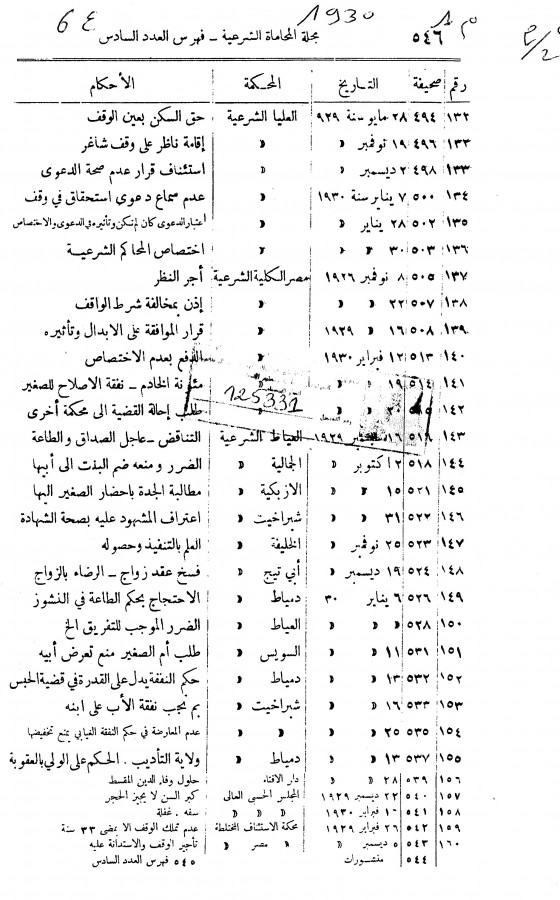 ٦٤ ١٩٣٠ م ١
٥٤٦ مجلة المحاماة الشرعية – فهرس العدد السادس
رقم صحيفة التــاريخ المحـكمة الأحكام
١٣٢ ٤٩٤ ٢٨ مايو سنة ٩٢٩ العليا الشرعية حق السكن بعين الوقف
١٣٣ ٤٩٦ ١٩ نوفمبر » » إقامة ناظر على وقف شاغر
١٣٣ ٤٩٨ ٢ ديسمبر » » استئناف قرار عدم صحة الدعوى
١٣٤ ٥٠٠ ٧ يناير سنة ١٩٣٠ » عدم سماع دعوى استحقاق في وقف
١٣٥ ٥٠٢ ٢٨ يناير » » اعتبار الدعوى كان لم تكن وتأثيره في الدعوى والاختصاص
١٣٦ ٥٠٣ ٣٠ » » » اختصاص المحاكم الشرعيــة
١٣٧ ٥٠٥ ٨ نوفمبر ١٩٢٦ مصر الكلية الشرعية أجر النظر
١٣٨ ٥٠٧ ٢٢ » » » إذن بمخالفة شرط الواقف
١٣٩ ٥٠٨ ١٦ » ١٩٢٩ » قرار الموافقة على الابدال وتأثيره
١٤٠ ٥١٣ ١٢ فبراير ١٩٣٠ » الدفع بعدم الاختصاص
١٤١ ٥١٤ ١٩ » » مئونة الخادم – نفقة الاصلاح للصغير
١٤٢ ٥١٥ ٢٠ طلب إحالة القضية الى محكمة أخرى
125331
١٤٣ ٥١٦ ١٦ ١٩٢٩ العياط الشرعية التناقض – عاجل الصداق والطاعة
١٤٤ ٥١٨ ١٢ اكتوبر » الجمالية » الضرر ومنعه ضم البنت الى أبيها
١٤٥ ٥٢١ ١٥ » » الازبكية » مطالبة الجدة باحضار الصغير اليها
١٤٦ ٥٢٢ ٣١ » » شبراخيت » اعتراف المشهود عليه بصحة الشهادة
١٤٧ ٥٢٣ ٢٥ نوفمبر » الخليفة » العلم بالتنفيذ وحصوله
١٤٨ ٥٢٤ ١٩ ديسمبر » أبي تيج » فسخ عقد زواج – الرضاء بالزواج
١٤٩ ٥٢٦ ٦ يناير ٣٠ دمياط » الاحتجاج بحكم الطاعة في النشوز
١٥٠ ٥٢٨ » » » العياط » الضرر الموجب للتفريق الخ
١٥١ ٥٣١ ١١ » » السويس » طلب أم الصغير منع تعرض أبيه
١٥٢ ٥٣٢ ١٣ » » دمياط » حكم النفقة يدل على القدرة في قضية الحبس
١٥٣ ٥٣٣ ١٦ » » شبراخيت » بم تجب نفقة الأب على ابنه
١٥٤ ٥٣٥ ٢٥ » » » » عدم المعارضة في حكم النفقة الغيابي يمنع تخفيضها
١٥٥ ٥٣٧ ١٣ » » دمياط » ولاية التأديب . الحكم على الولي بالعقوبة
١٥٦ ٥٣٩ ٢٨ » » دار الافتاء حلول وفاء الدين المقسط
١٥٧ ٥٤٠ ٢٢ ديسمبر ١٩٢٩ المجلس الحسبى العالى كبر السن لا يجيز الحجر
١٥٨ ٥٤١ ١٦ فبراير ١٩٣٠ » » » سفه . غفلة
١٥٩ ٥٤٢ ٢٦ فبراير ١٩٢٩ محكمة الاستئناف المختلطة عدم تملك الوقف الا بمضى ٣٣ سنة
١٦٠ ٥٤٣ ٥ ديسمبر » » مصر » تأجير الوقف والاستدانة عليه
٥٤٤ منشورات ٥٤٥ فهرس العدد السادس